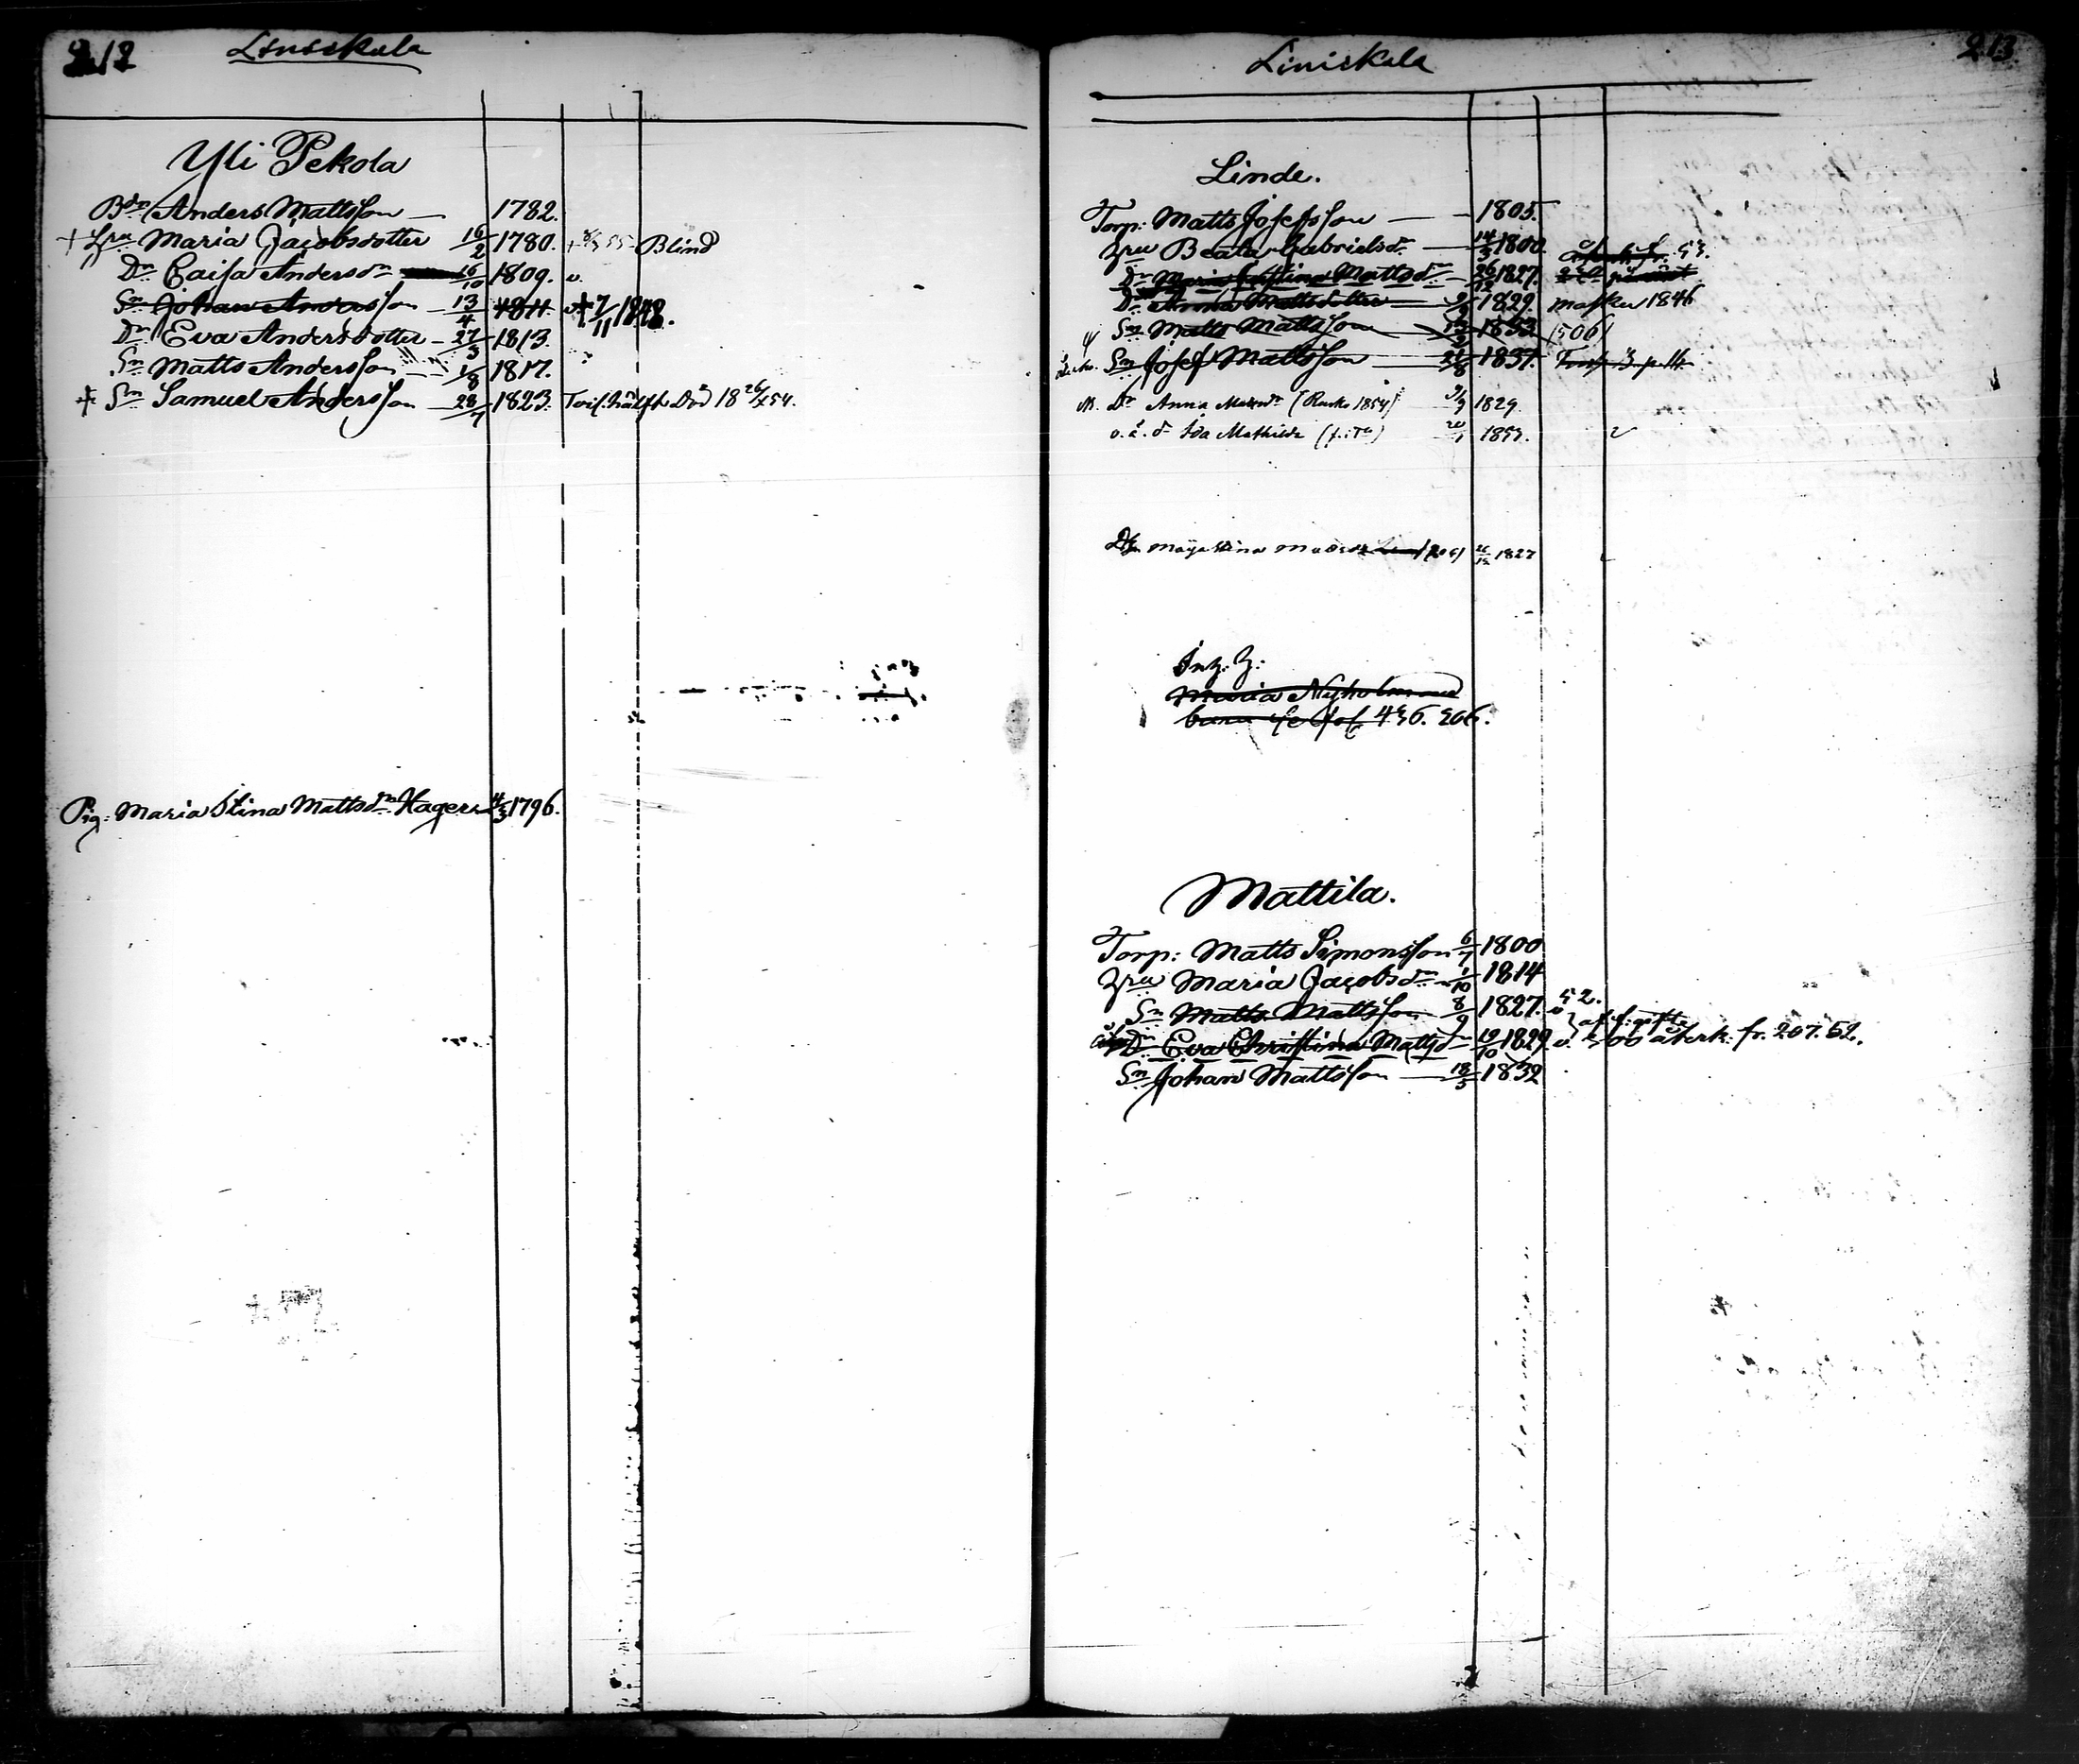 212 Liniskala
Yli Pekola
Bdn Anders Mattsson — 1782.
+ Hru Maria Jacobsdotter 16/2 1780. Blind
Dr Caisa Andersdr 16/10 1809. v.
Sn Johan Andersson 13/4 1811. v + 7/11 1848.
Dr Eva Andersdotter 27/3 1813.
Sn Matts Andersson 1/8 1817.
+ Sn Samuel Andersson 28/7 1823. Död 18 26/5 54.
Pig: Maria Stina Mattsdr Hager 4/3 1796.
Liniskala 213
Linde.
Torp: Matts Josefsson — 1805.
Hru Beata Gabrielsdr — 14/3 1800
Dr Maria Christina Mattsdr 26/12 1827. 53.
Dr Anna Mattsdotter — 9/9 1829. Masku 1846
Sn Matts Mattsson 1833 (506)
Sn Josef Mattsson — 21/8 1837.
Dr Anna Mattsdr (Rusko 1854) 9/9 1829.
o. ä. d Ida Mathilda 20/1 1853.
Maja Stina 26/12 1827
Inh. H:
Maria Nyholm
barn se fol 436. 506.
Mattila.
Torp: Matts Simonsson 6/7 1800
Hru Maria Jacobsdr 1/10 1814
Sn Matts Mattsson 8/9 1827. v 52.
Dr Eva Christina Mattsdr 19/10 1829. v. återk. fr. 207. 52.
Sn Johan Mattsson — 18/5 1832